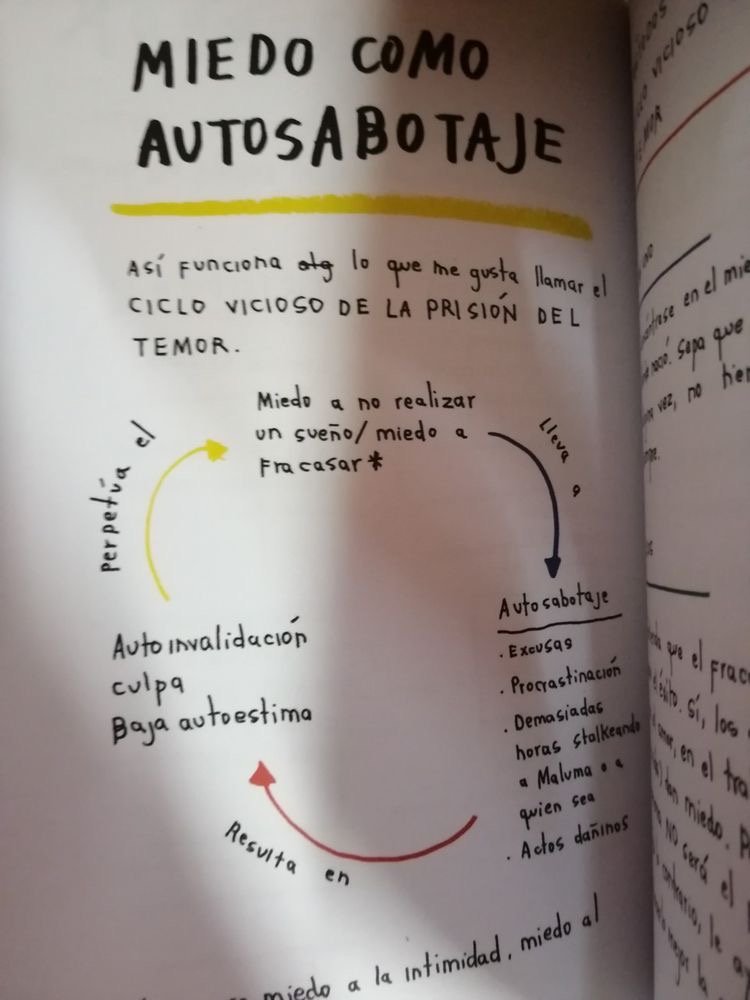 MIEDO COMO
AUTOSABOTAJE
Así funciona alg lo que me gusta llamar el
CICLO VICIOSO DE LA PRISIÓN DEL
TEMOR.
Miedo a no realizar
un sueño/miedo a
Fracasar*
lleva a
Autosabotaje
. Excusas
. Procrastinación
. Demasiadas
horas stalkeando
a Maluma o a
quien sea
. Actos dañinos
Resulta en
Autoinvalidación
culpa
Baja autoestima
Perpetúa el
miedo a la intimidad, miedo al
VICIOSO
en el mie
Sepa que
vez, no
que el frac
Sí, los
en el tra
tan miedo.
NO será el
le
mejor la